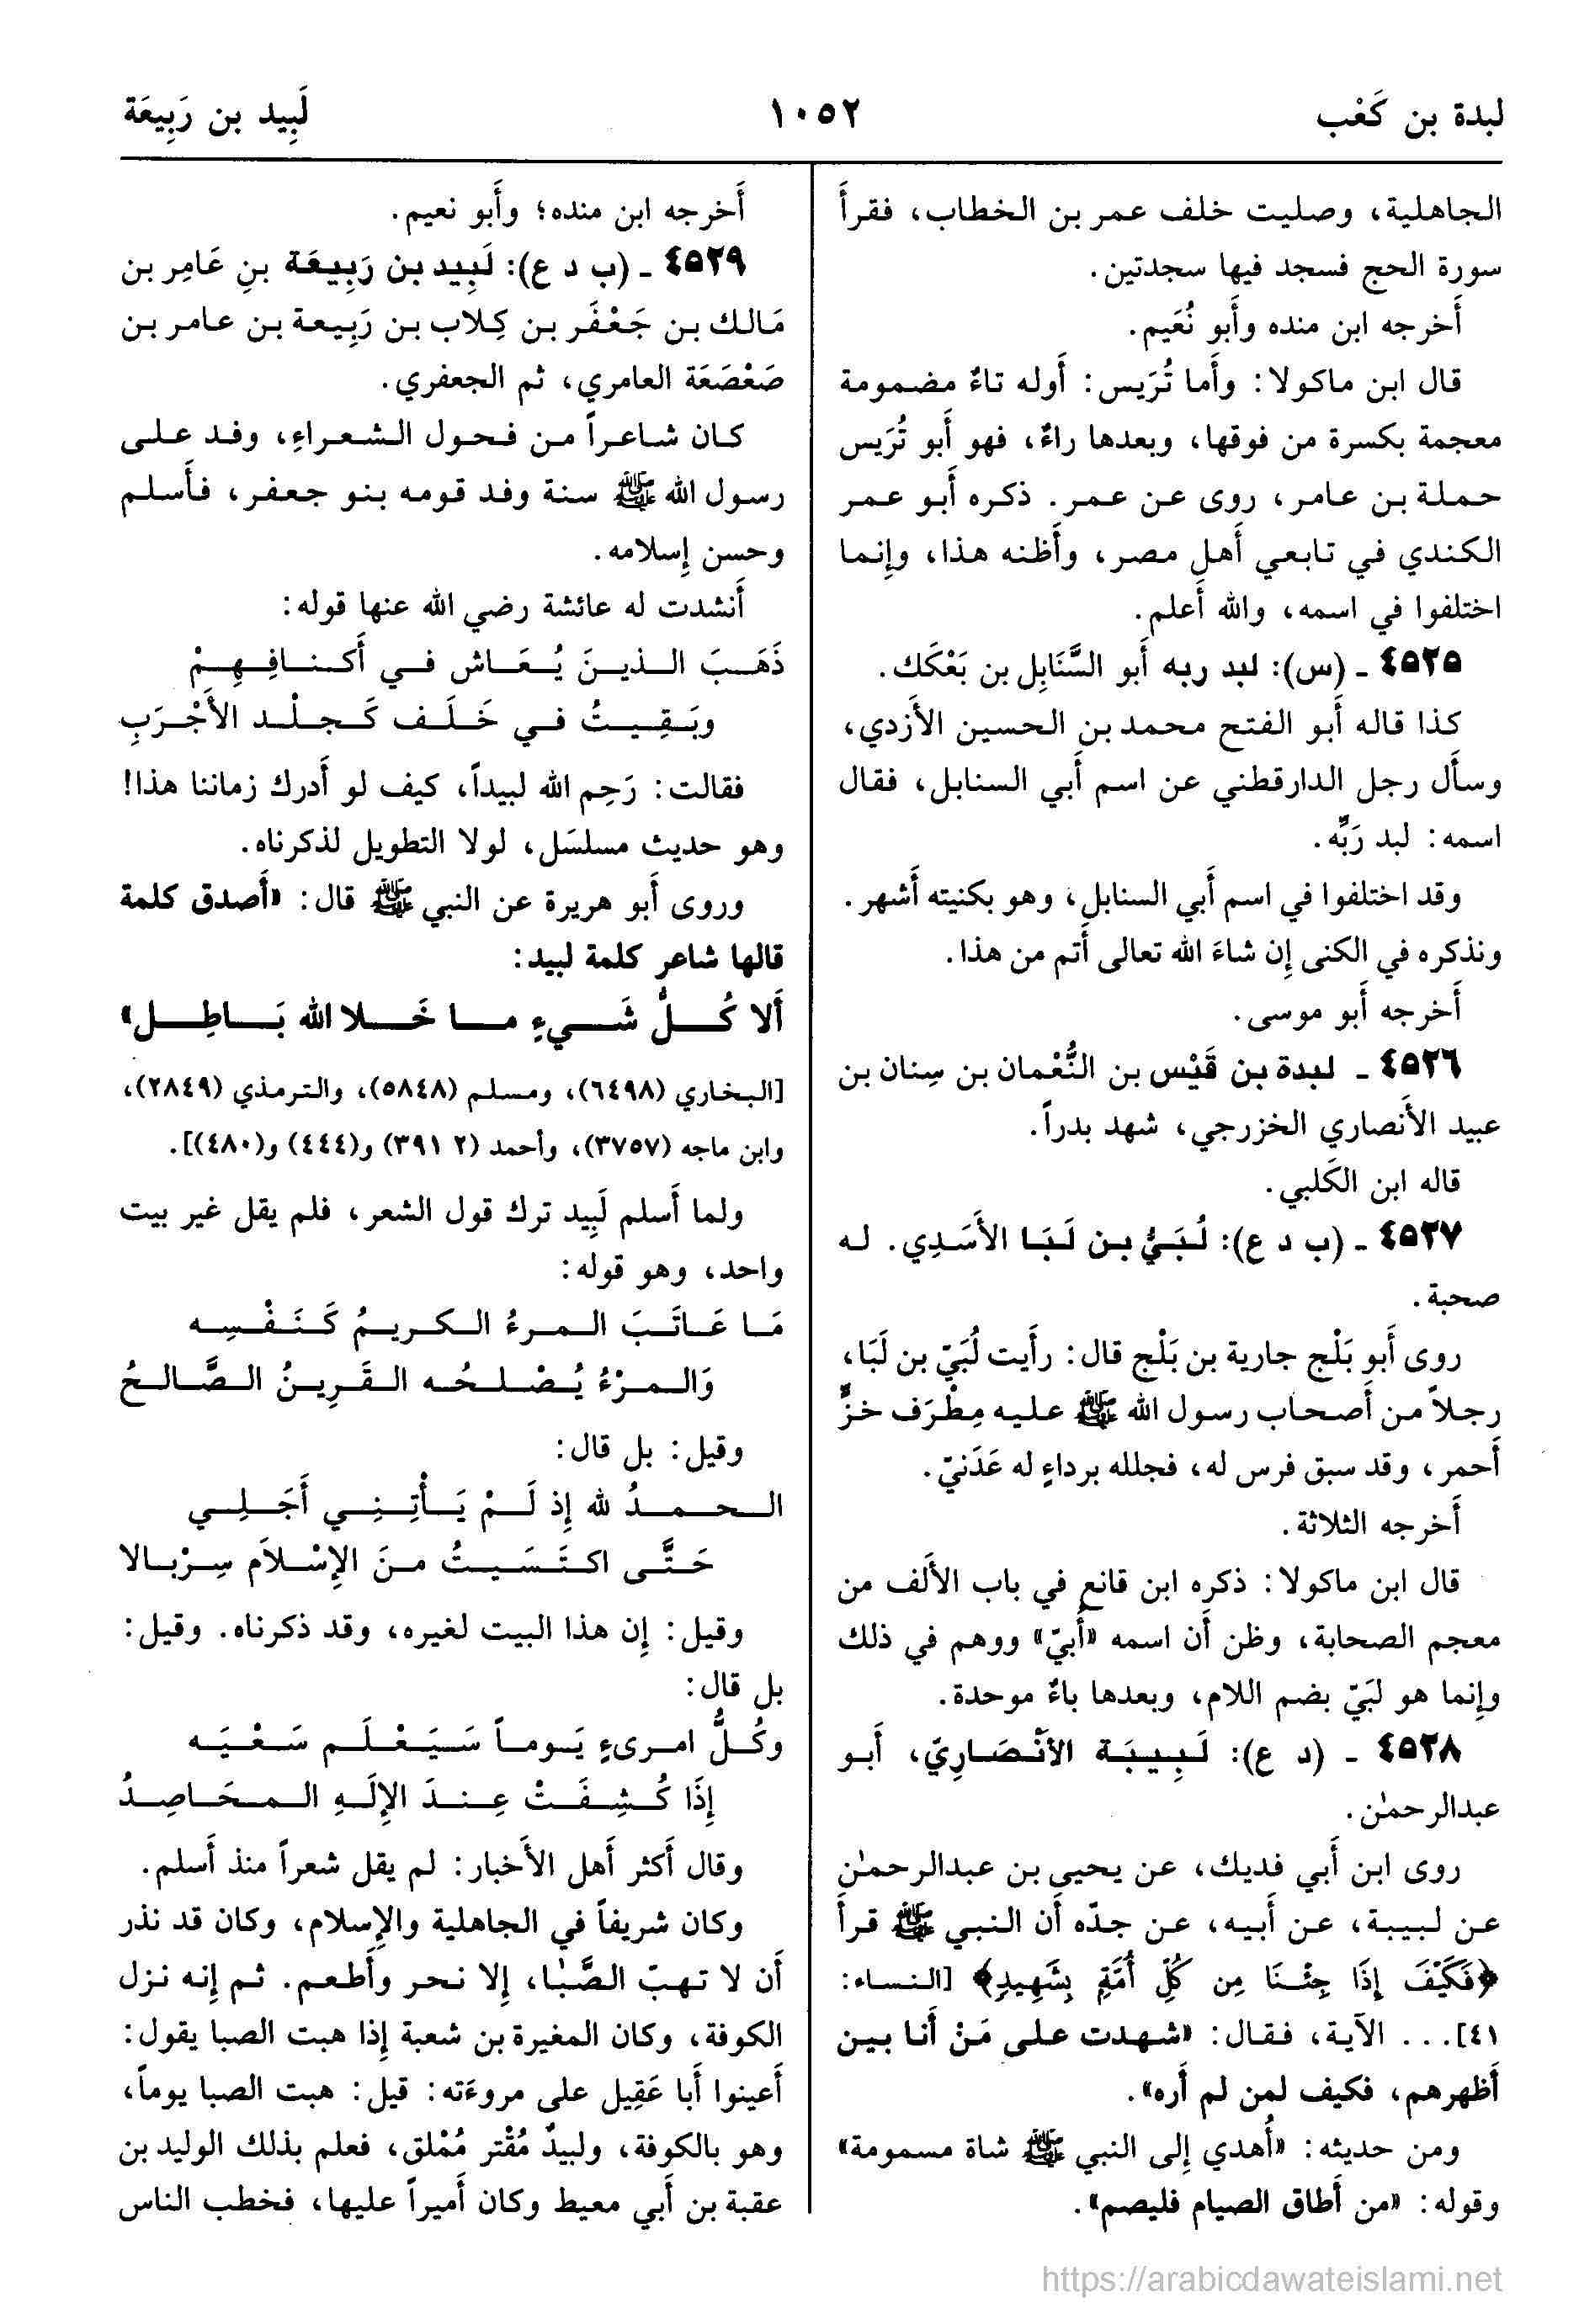 لبدة بن كَعْب
١٠٥٢
لَبِيد بن رَبِيعَة
الجاهلية، وصليت خلف عمر بن الخطاب، فقرأَ
سورة الحج فسجد فيها سجدتين.
أَخرجه ابن منده وأَبو نُعَيم.
قال ابن ماكولا: وأَما تُرَيس: أَوله تاءٌ مضمومة
معجمة بكسرة من فوقها، وبعدها راءٌ، فهو أَبو تُرَيس
حملة بن عامر، روى عن عمر. ذكره أَبو عمر
الكندي في تابعي أَهل مصر، وأَظنه هذا، وإِنما
اختلفوا في اسمه، والله أَعلم.
٤٥٢٥ ـ (س): لبد ربه أَبو السَّنَابِل بن بَعْكَك.
كذا قاله أَبو الفتح محمد بن الحسين الأَزدي،
وسأَل رجل الدارقطني عن اسم أَبي السنابل، فقال
اسمه: لبد رَبِّه.
وقد اختلفوا في اسم أَبي السنابل، وهو بكنيته أَشهر.
ونذكره في الكنى إِن شاءَ الله تعالى أَتم من هذا.
أَخرجه أَبو موسى.
٤٥٢٦ ـ لبدة بن قَيْس بن النُّعْمان بن سِنان بن
عبيد الأَنصاري الخزرجي، شهد بدراً.
قاله ابن الكَلبي.
٤٥٢٧ ـ (ب د ع): لُبَيُّ بن لَبَا الأَسَدِي. له
صحبة.
روى أَبو بَلْج جارية بن بَلْج قال: رأَيت لُبَيّ بن لَبَا،
رجلاً من أَصحاب رسول الله ﷺ عليه مِطْرَف خزٍّ
أَحمر، وقد سبق فرس له، فجلله برداءٍ له عَدَنيّ.
أَخرجه الثلاثة.
قال ابن ماكولا: ذكره ابن قانع في باب الأَلف من
معجم الصحابة، وظن أَن اسمه «أُبيّ» ووهم في ذلك
وإِنما هو لبَيّ بضم اللام، وبعدها باءٌ موحدة.
٤٥٢٨ ـ (د ع): لَبِيبَة الأَنْصَارِيّ، أَبو
عبدالرحمٰن.
روى ابن أَبي فديك، عن يحيى بن عبدالرحمٰن
عن لبيبة، عن أَبيه، عن جدّه أَن النبي ﷺ قرأَ
﴿فَكَيْفَ إِذَا جِئْنَا مِن كُلِّ أُمَّةٍ بِشَهِيدٍ﴾ [النساء:
٤١]... الآية، فقال: «شهدت على مَنْ أَنا بين
أَظهرهم، فكيف لمن لم أَره».
ومن حديثه: «أُهدي إِلى النبي ﷺ شاة مسمومة»
وقوله: «من أَطاق الصيام فليصم».
أَخرجه ابن منده؛ وأَبو نعيم.
٤٥٢٩ ـ (ب د ع): لَبِيد بن رَبِيعَة بنِ عَامِر بن
مَالك بن جَعْفَر بن كِلاب بن رَبِيعة بن عامر بن
صَعْصَعَة العامري، ثم الجعفري.
كان شاعراً من فحول الشعراءِ، وفد على
رسول الله ﷺ سنة وفد قومه بنو جعفر، فأَسلم
وحسن إِسلامه.
أَنشدت له عائشة رضي الله عنها قوله:
ذَهَبَ الذينَ يُعَاش في أَكنافِهِمْ
وبَقِيتُ في خَلَف كَجلْد الأَجْرَبِ
فقالت: رَحِم الله لبيداً، كيف لو أَدرك زماننا هذا!
وهو حديث مسلسَل، لولا التطويل لذكرناه.
وروى أَبو هريرة عن النبي ﷺ قال: «أَصدق كلمة
قالها شاعر كلمة لبيد:
أَلا كُلُّ شَيءٍ ما خَلا الله بَاطِل»
[البخاري (٦٤٩٨)، ومسلم (٥٨٤٨)، والترمذي (٢٨٤٩)،
وابن ماجه (٣٧٥٧)، وأحمد (٢ ٣٩١) و(٤٤٤) و(٤٨٠)].
ولما أَسلم لَبِيد ترك قول الشعر، فلم يقل غير بيت
واحد، وهو قوله:
مَا عَاتَبَ المرءُ الكريمُ كَنَفْسِه
وَالمرْءُ يُصْلحُه القَرِينُ الصَّالحُ
وقيل: بل قال:
الحمدُ لله إِذ لَمْ يَأْتِنِي أَجَلِي
حَتَّى اكتَسَيتُ منَ الإِسْلاَم سِرْبالا
وقيل: إِن هذا البيت لغيره، وقد ذكرناه. وقيل:
بل قال:
وكُلُّ امرىءٍ يَوماً سَيَعْلَم سَعْيَه
إِذَا كُشِفَتْ عِندَ الإِلَهِ المحَاصِدُ
وقال أَكثر أَهل الأَخبار: لم يقل شعراً منذ أَسلم.
وكان شريفاً في الجاهلية والإِسلام، وكان قد نذر
أَن لا تهبّ الصَّبَا، إِلا نحر وأَطعم. ثم إِنه نزل
الكوفة، وكان المغيرة بن شعبة إِذا هبت الصبا يقول:
أَعينوا أَبا عَقِيل على مروءَته: قيل: هبت الصبا يوماً،
وهو بالكوفة، ولبيدٌ مُقْتر مُمْلق، فعلم بذلك الوليد بن
عقبة بن أَبي معيط وكان أَميراً عليها، فخطب الناس
https://arabicdawateislami.net